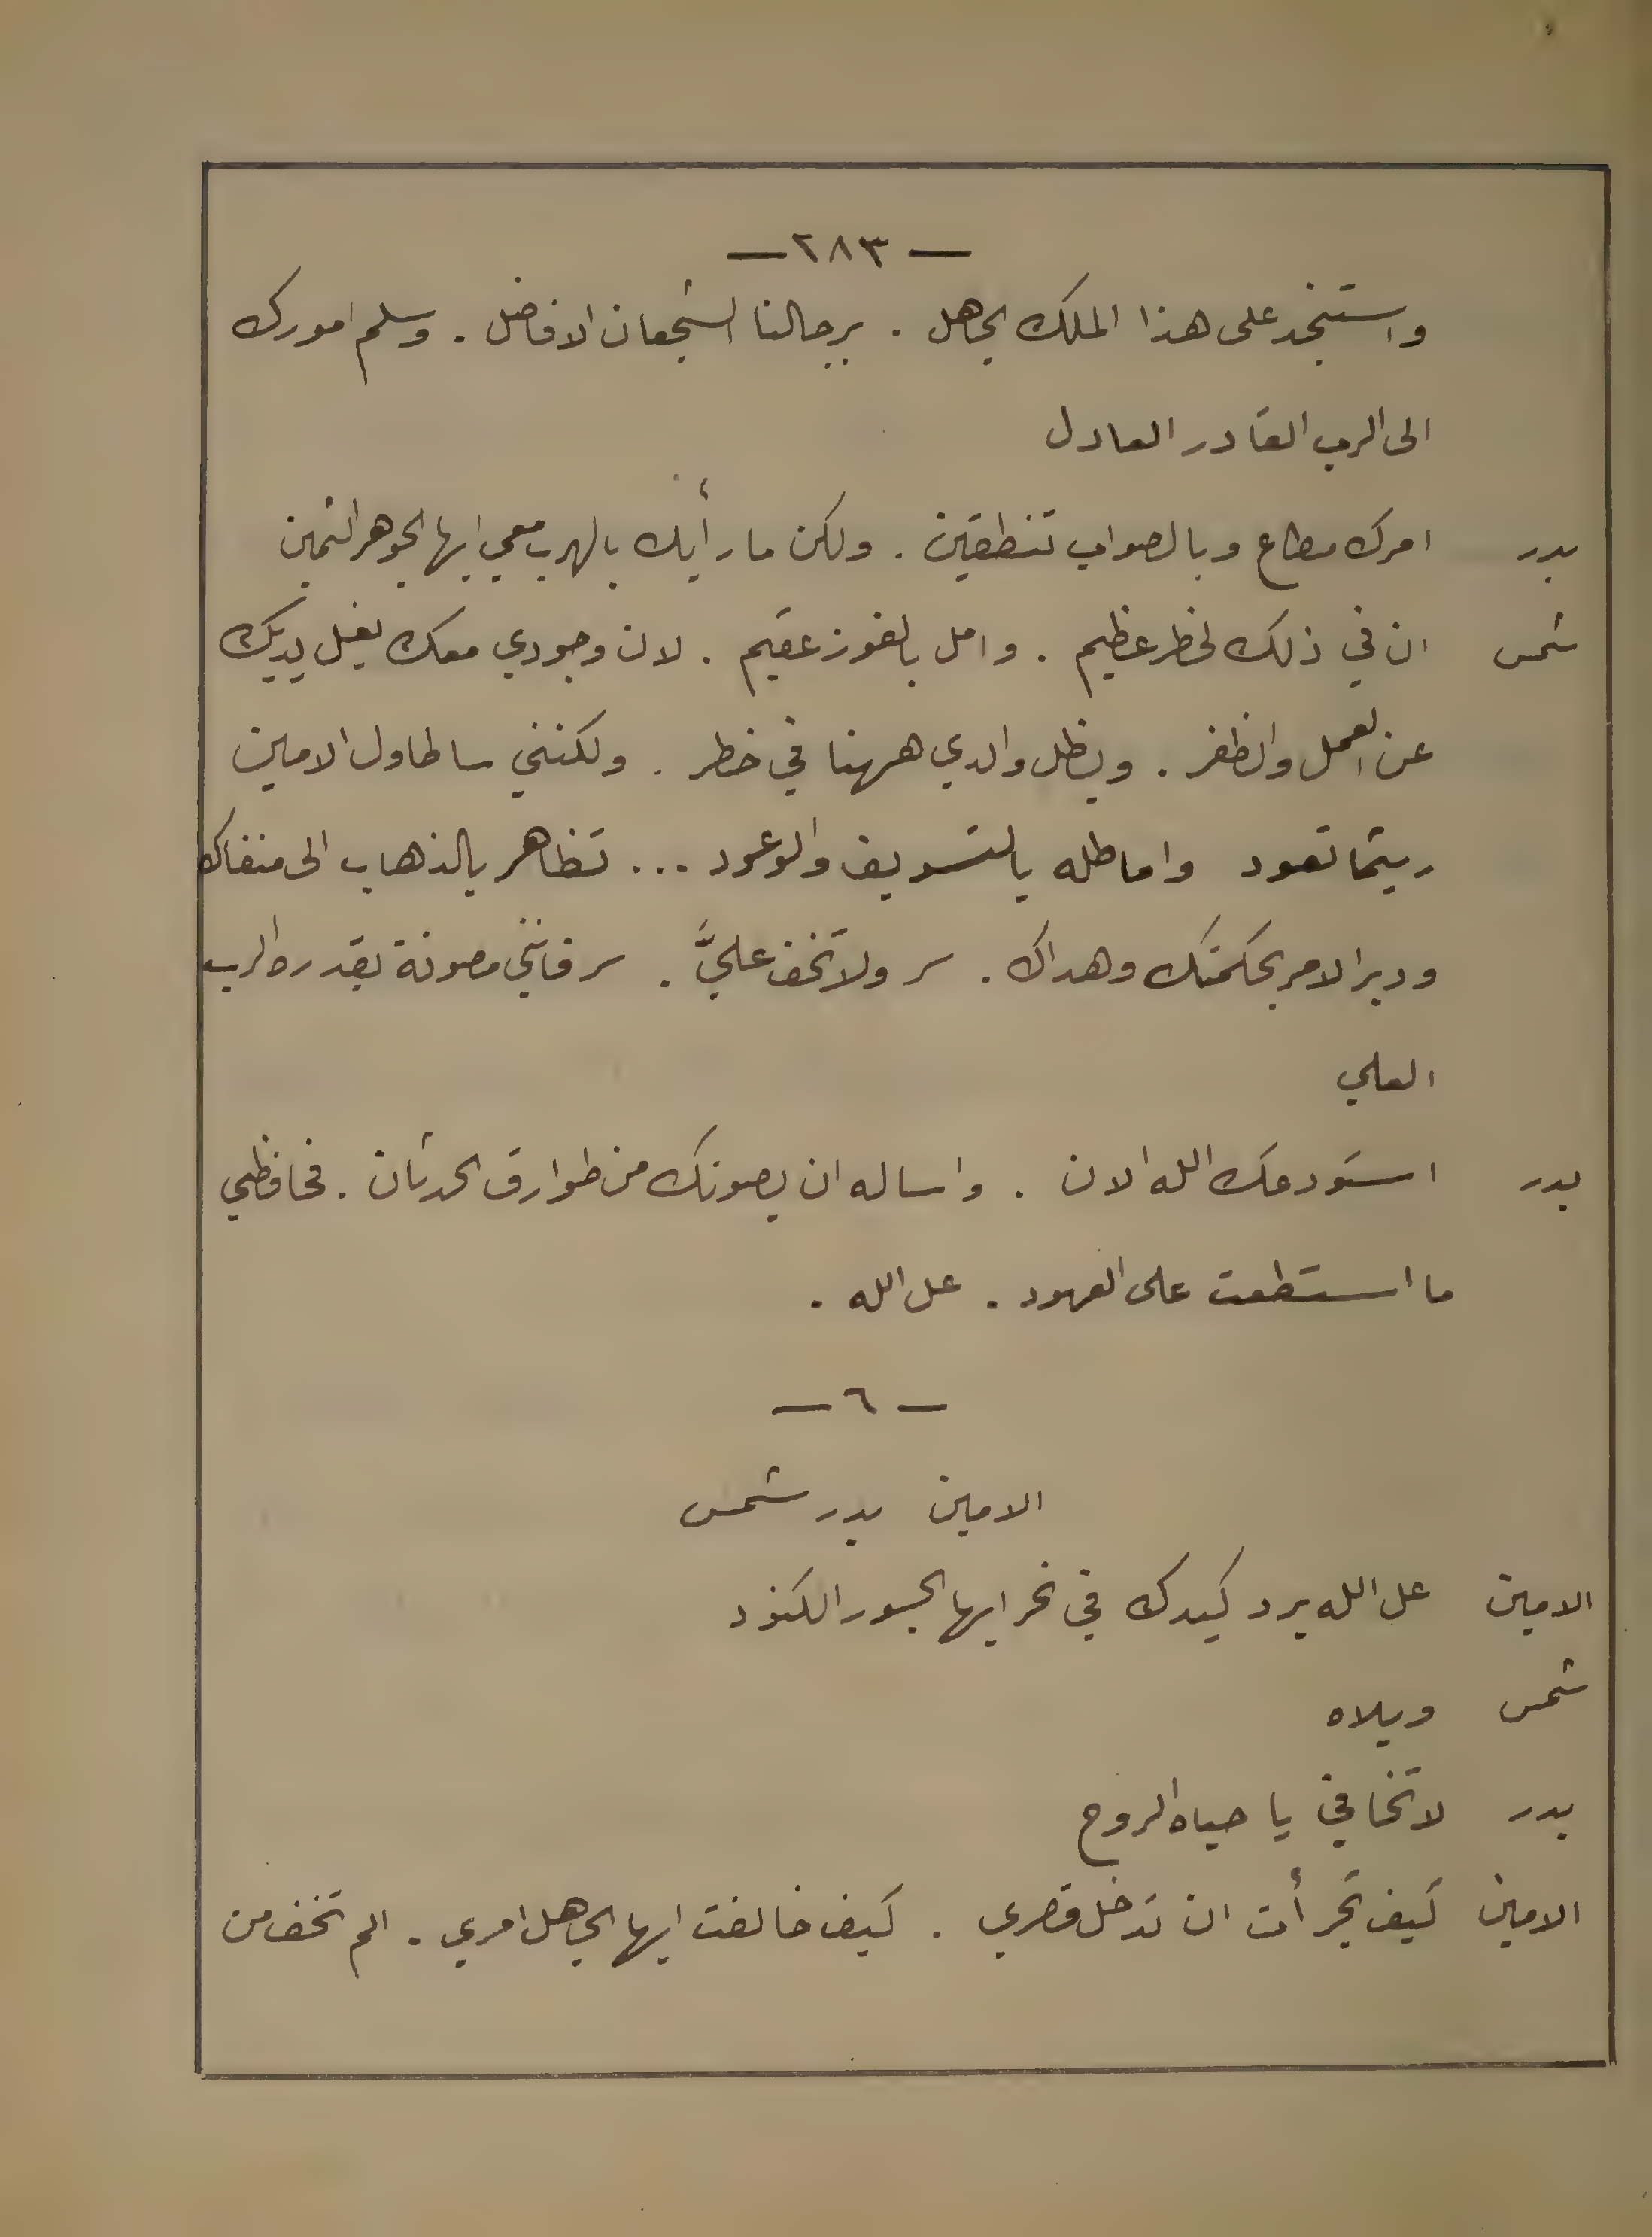 — ٢٨٣ —
واستنجد على هذا الملك الجاهل . برجالنا الشجعان الافاضل . وسلم امورك
الى الرب القادر العادل
بدر امرك مطاع وبالصواب تنطقين . ولكن ما رأيك بالهرب معي ايها الجوهر الثمين
شمس ان في ذلك لخطر عظيم . وامل بالفوز عقيم . لان وجودي معك يغل يديك
عن العمل والظفر . ويظل والدي ههنا في خطر . ولكنني ساطاول الامين
ريثما تعود واماطله بالتسويف والوعود ... تظاهر بالذهاب الى منفاك
ودبر الامر بحكمتك وهداك . سر ولا تخف عليَّ . سر فانني مصونة بقدره الرب
العلي
بدر استودعك الله الان . واساله ان يصونك من طوارق الحدثان . فحافظي
ما استطعت على العهود . عل الله .
— ٦ —
الامين بدر شمس
الامين عل الله يرد كيدك في نحر ايها الجسور الكنود
شمس ويلاه
بدر لا تخافي يا حياه الروح
الامين كيف تجرأت ان تدخل قصري . كيف خالفت ايها الجاهل امري . الم تخف من